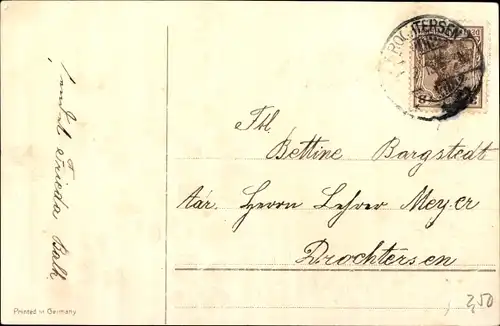 DROCHTERSEN
sendet Frieda Balk
Frl.
Bettine Bargstedt
Adr. Herrn Lehrer Meyer
Drochtersen
Printed in Germany
2,50